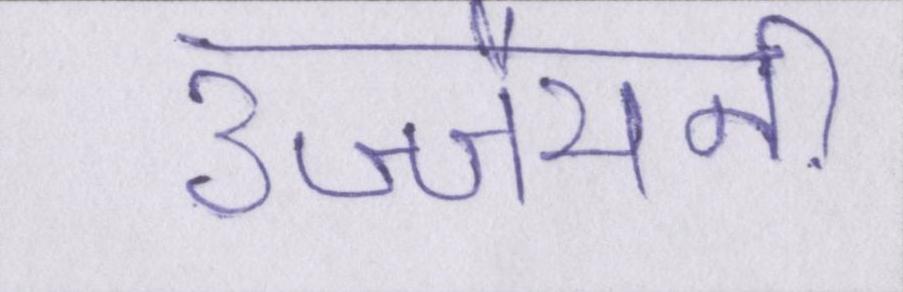 उज्जैयनी